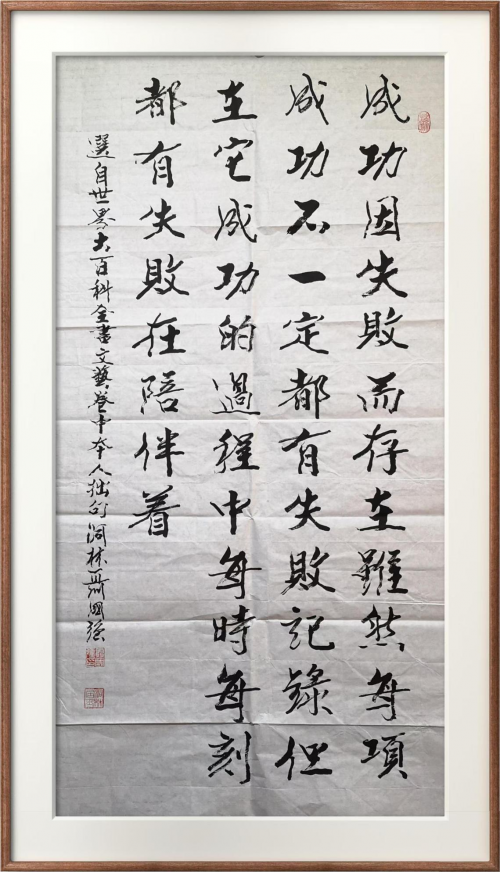 成功因失敗而存在雖然每項
成功不一定都有失敗記錄但
在它成功的過程中每時每刻
都有失敗在陪伴着
選自世界大百科全書文藝卷中本人拙句